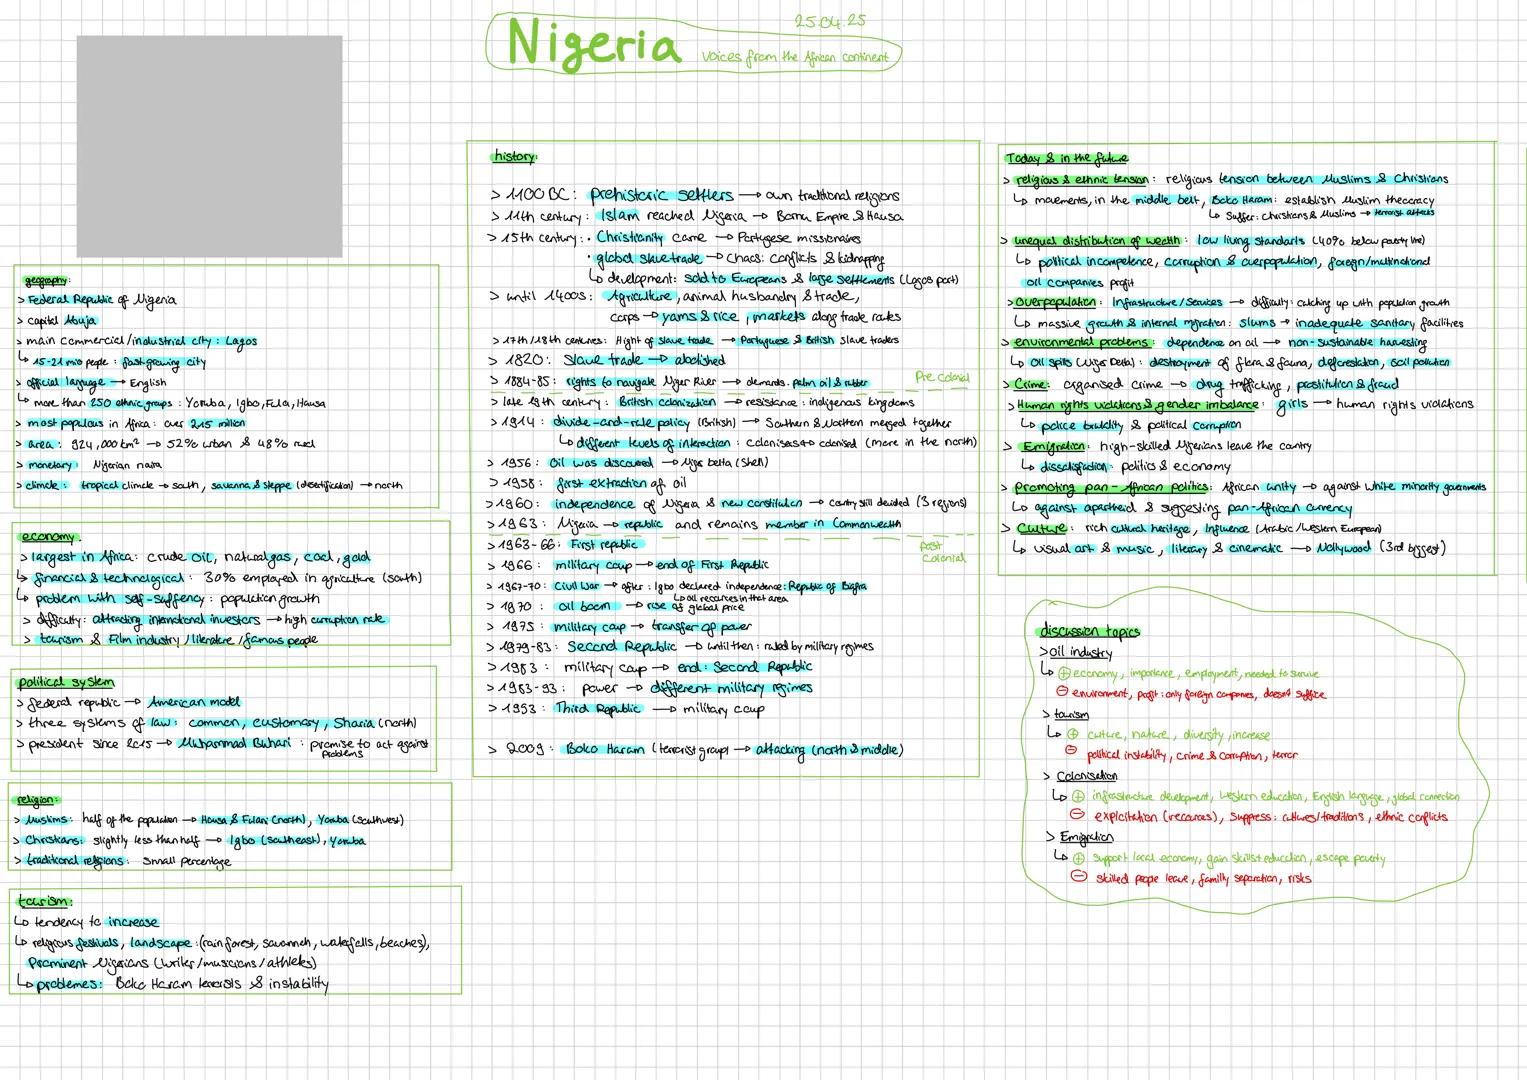 25.04.25
Nigeria
Voices from the African continent
geography:
> Federal Republic of Nigeria
> capital Abuja
> main commercial/industrial city: Lagos
↳ 15-21 mio people: fast-growing city
> official language → English
↳ more than 250 ethnic groups: Yoruba, Igbo, Fula, Hausa
> most populous in Africa: over 215 million
> area: 924,000 km² → 52% urban & 48% rural
> monetary: Nigerian naira
> climate: tropical climate → south, savanna & steppe (desertification) → north
economy
> largest in Africa: crude oil, natural gas, coal, gold
↳ financial & technological: 30% employed in agriculture (south)
↳ problem with self-suffency: population growth
> difficulty: attracting international investors → high corruption rate
> tourism & Film industry / literature / famous people
political system
> federal republic → American model
> three systems of law: common, customary, Sharia (north)
> president since 2015 → Muhammad Buhari: promise to act against
problems
religion:
> Muslims: half of the population → Hausa & Fulani (north), Yoruba (southwest)
> Christians: slightly less than half → Igbo (southeast), Yoruba
> traditional religions: small percentage
tourism:
↳ tendency to increase
↳ religious festivals, landscape: (rainforest, savannah, waterfalls, beaches),
Prominent Nigerians (writer/musicians/athletes)
↳ problemes: Boko Haram terrorists & instability
history:
> 1100 BC: prehistoric settlers → own traditional religions
> 11th century: Islam reached Nigeria → Bornu Empire & Hausa
> 15th century: • Christianity came → Portugese missionaires
• global slave trade → Chaos: conflicts & kidnapping
↳ development: sold to Europeans & large settlements (Lagos port)
> until 1400s: Agriculture, animal husbandry & trade,
corps → yams & rice, markets along trade routes
> 17th/18th centuries: Hight of slave trade → Portuguese & British slave traders
> 1820: Slave trade → abolished
> 1884-85: rights to navigate Niger River → demands: palm oil & rubber
Pre colonial
> late 19th century: British colonization → resistance: indigenous kingdoms
> 1914: divide-and-rule policy (British) → Southern & Northern merged together
↳ different levels of interaction: colonisers ↔ colonised (more in the north)
> 1956: Oil was discovered → Niger Delta (Shell)
> 1958: first extraction of oil
> 1960: independence of Nigeria & new constitution → country still devided (3 regions)
> 1963: Nigeria → republic and remains member in Commonwealth
post
colonial
> 1963-66: First republic
> 1966: military coup → end of First Republic
> 1967-70: Civil War → after: Igbo declared independence: Republic of Biafra
↳ oil recources in that area
> 1970: oil boom → rise of global price
> 1975: military coup → transfer of power
> 1979-83: Second Republic → until then: ruled by military regimes
> 1983: military coup → end: Second Republic
> 1983-93: power → different military regimes
> 1993: Third Republic → military coup
> 2009: Boko Haram (terrorist group) → attacking (north & middle)
Today & in the future
> religious & ethnic tension: religious tension between Muslims & Christians
↳ movements, in the middle belt, Boko Haram: establish Muslim theocracy
↳ Suffer: Christians & Muslims → terrorist attacks
> unequal distribution of wealth: low living standarts (40% below poverty line)
↳ political incompetence, corruption & overpopulation, foreign/multinational
oil companies profit
> Overpopulation: Infrastructure/Services → difficulty: catching up with population growth
↳ massive growth & internal migration: slums → inadequate sanitary facilities
> environmental problems: dependence on oil → non-sustainable harvesting
↳ Oil spills (Niger Delta): destroyment of flora & fauna, deforestation, soil pollution
> Crime: organised crime → drug trafficking, prostitution & fraud
> Human rights violations & gender imbalance: girls → human rights violations
↳ police brutality & political corruption
> Emigration: high-skilled Nigerians leave the country
↳ dissatisfaction: politics & economy
> Promoting pan-African politics: African unity → against white minority governments
↳ against apartheid & suggesting pan-African currency
> Culture: rich cultural heritage, Influence (Arabic/Western European)
↳ visual art & music, literary & cinematic → Nollywood (3rd biggest)
discussion topics
> oil industry
↳ ⊕ economy, importance, employment, needed to survive
⊖ environment, profit: only foreign companies, doesn't suffice
> tourism
↳ ⊕ culture, nature, diversity, increase
⊖ political instability, crime & corruption, terror
> Colonisation
↳ ⊕ infrastructure development, Western education, English language, global connection
⊖ exploitation (recources), suppress: cultures/traditions, ethnic conflicts
> Emigration
↳ ⊕ support local economy, gain skills + education, escape poverty
⊖ skilled people leave, familly separation, risks